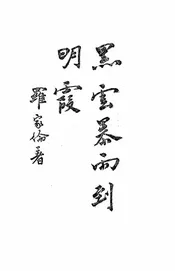 黑雲暴雨到
明霞
羅家倫著